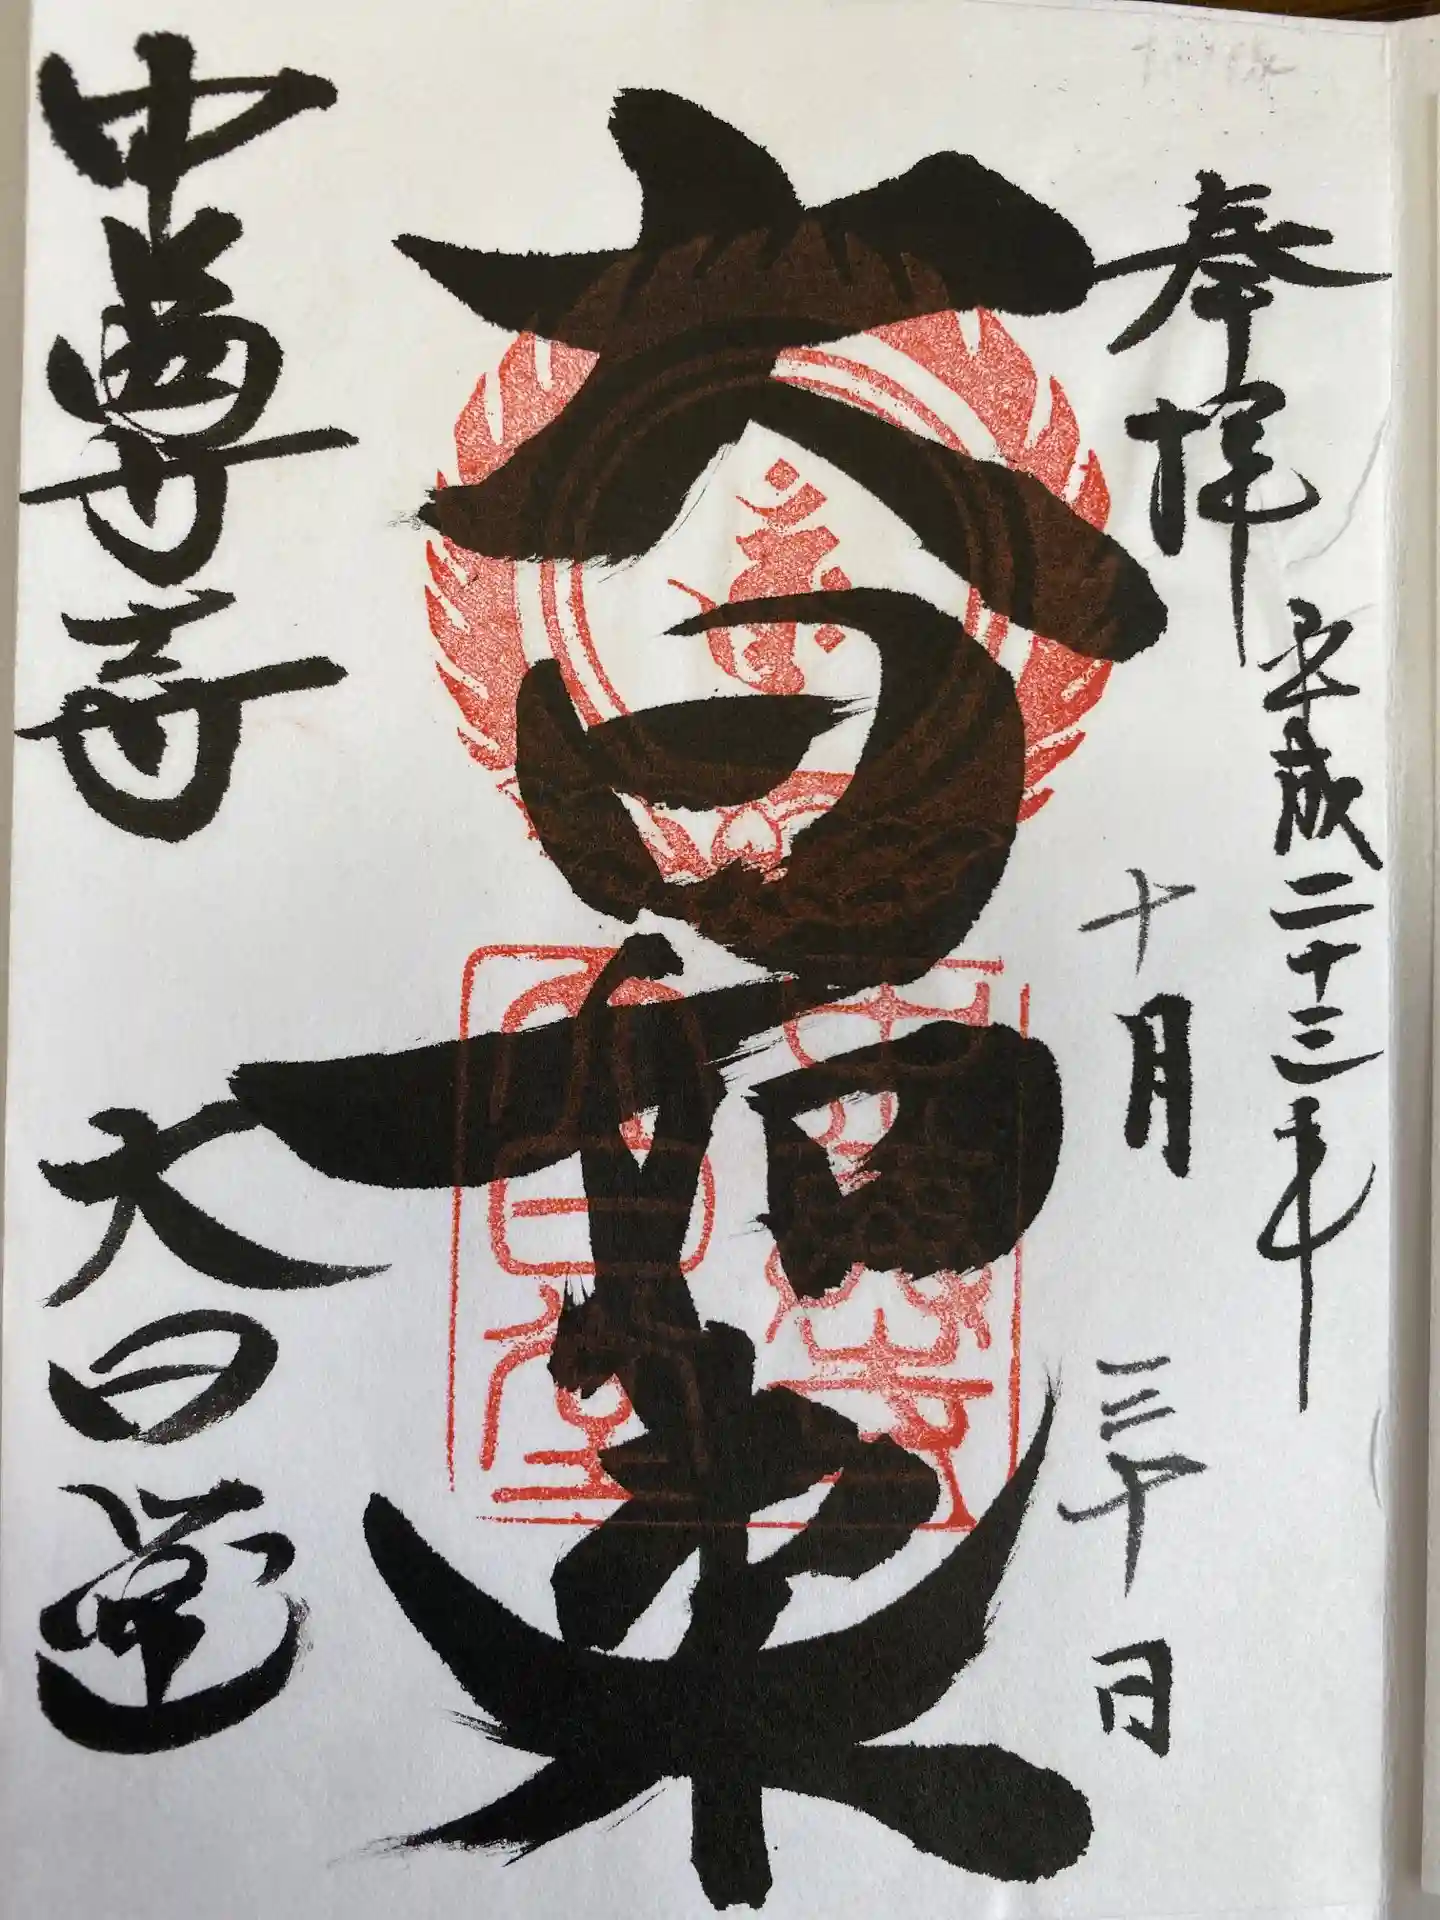 奉拝
平成二十三年
十月三十日
大日如来
中尊寺
大日堂